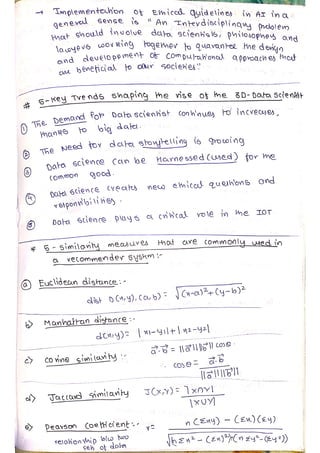 → Implementation of Ethical guidelines in AI in a
general sense is "An Interdisciplinary problem
that should involve data scientists, philosophers and
lawyers working together to guarantee the design
and development of computational approaches that
are beneficial to our societies"
# 5-Key Trends shaping the rise of the 3D-Data scientist
① The Demand for Data scientist continues to increases,
thanks to big data.
② The Need for data storytelling is growing
③ Data science can be Harnessed (used) for the
common good.
④ Data science creates new ethical questions and
responsibilities.
⑤ Data science plays a critical role in the IOT
# 5-similarity measures that are commonly used in
a recommender system:-
a) Euclidean distance:-
dist D(x,y),(a,b) = √(x-a)²+(y-b)²
b) Manhattan distance:-
d(x,y)= |x1-y1|+|x2-y2|
c) Cosine similarity:- a⃗.b⃗ = ||a⃗||||b⃗|| cosθ
cosθ = a⃗.b⃗ / ||a⃗||||b⃗||
d) Jaccard similarity J(X,Y)= |X∩Y| / |X∪Y|
e) Pearson Coefficient:- r= n(Σxy) - (Σx)(Σy)
relationship b/w two √[nΣx²-(Σx)²][nΣy²-(Σy)²]
set of data